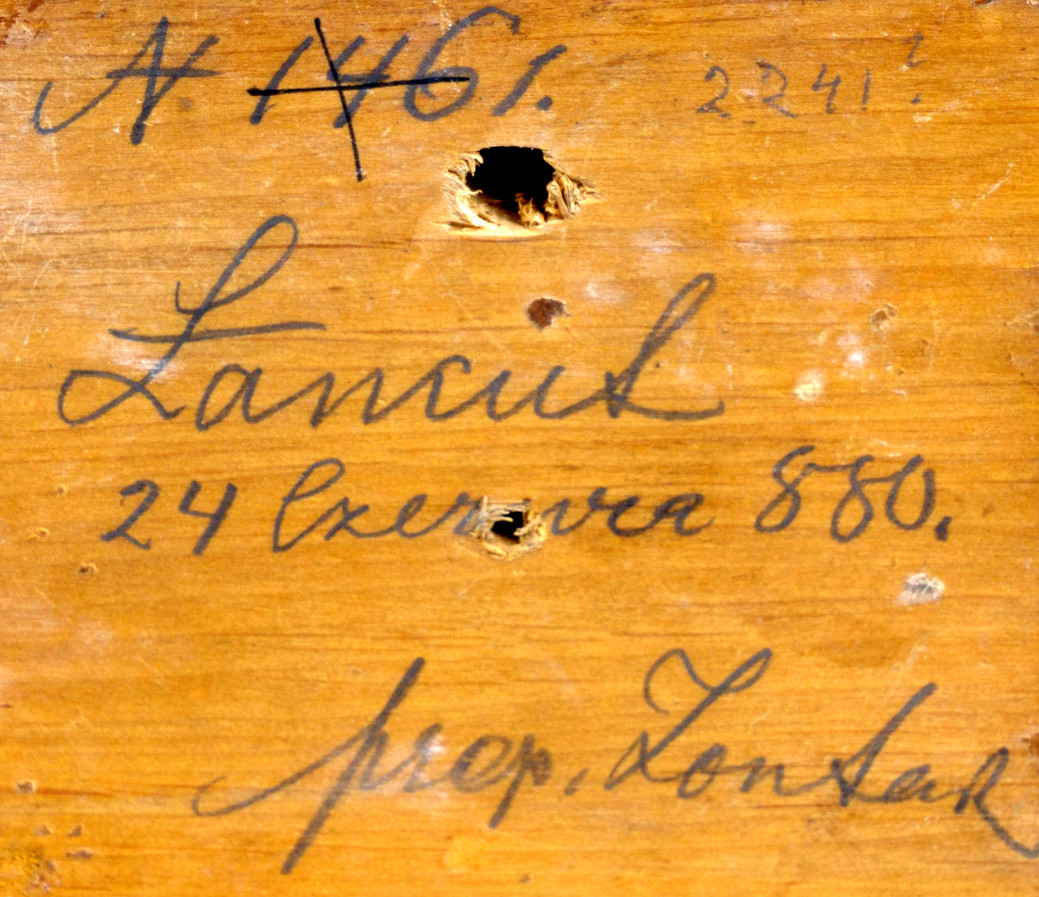 N 1461. 2241.
Łancut
24 Czerwca 880.
prep. Zontak